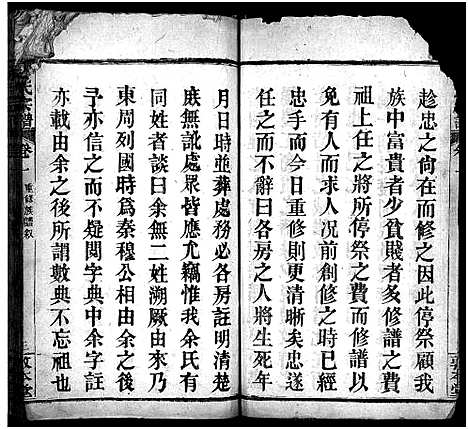 趁忠之尙在而修之此停祭顧我
族中富貴者少貧賤者多修譜之費
祖上任之將所停祭之費而修譜以
免有人而求況前創修之時已有
忠手而今日重修則清晰矣忠遂
任之而不辭曰各房之人將生死年
月日時並葬處務必各房註明清楚
庶無訛處衆皆應允竊惟我余氏有
同姓者談曰余無二姓溯厥由來乃
東周列國時爲秦穆公由余之後
予亦信之而不疑閱字典中余字註
亦載由余之後所謂數典不忘祖也
氏宗譜 卷一 重修族譜叙
敦本堂